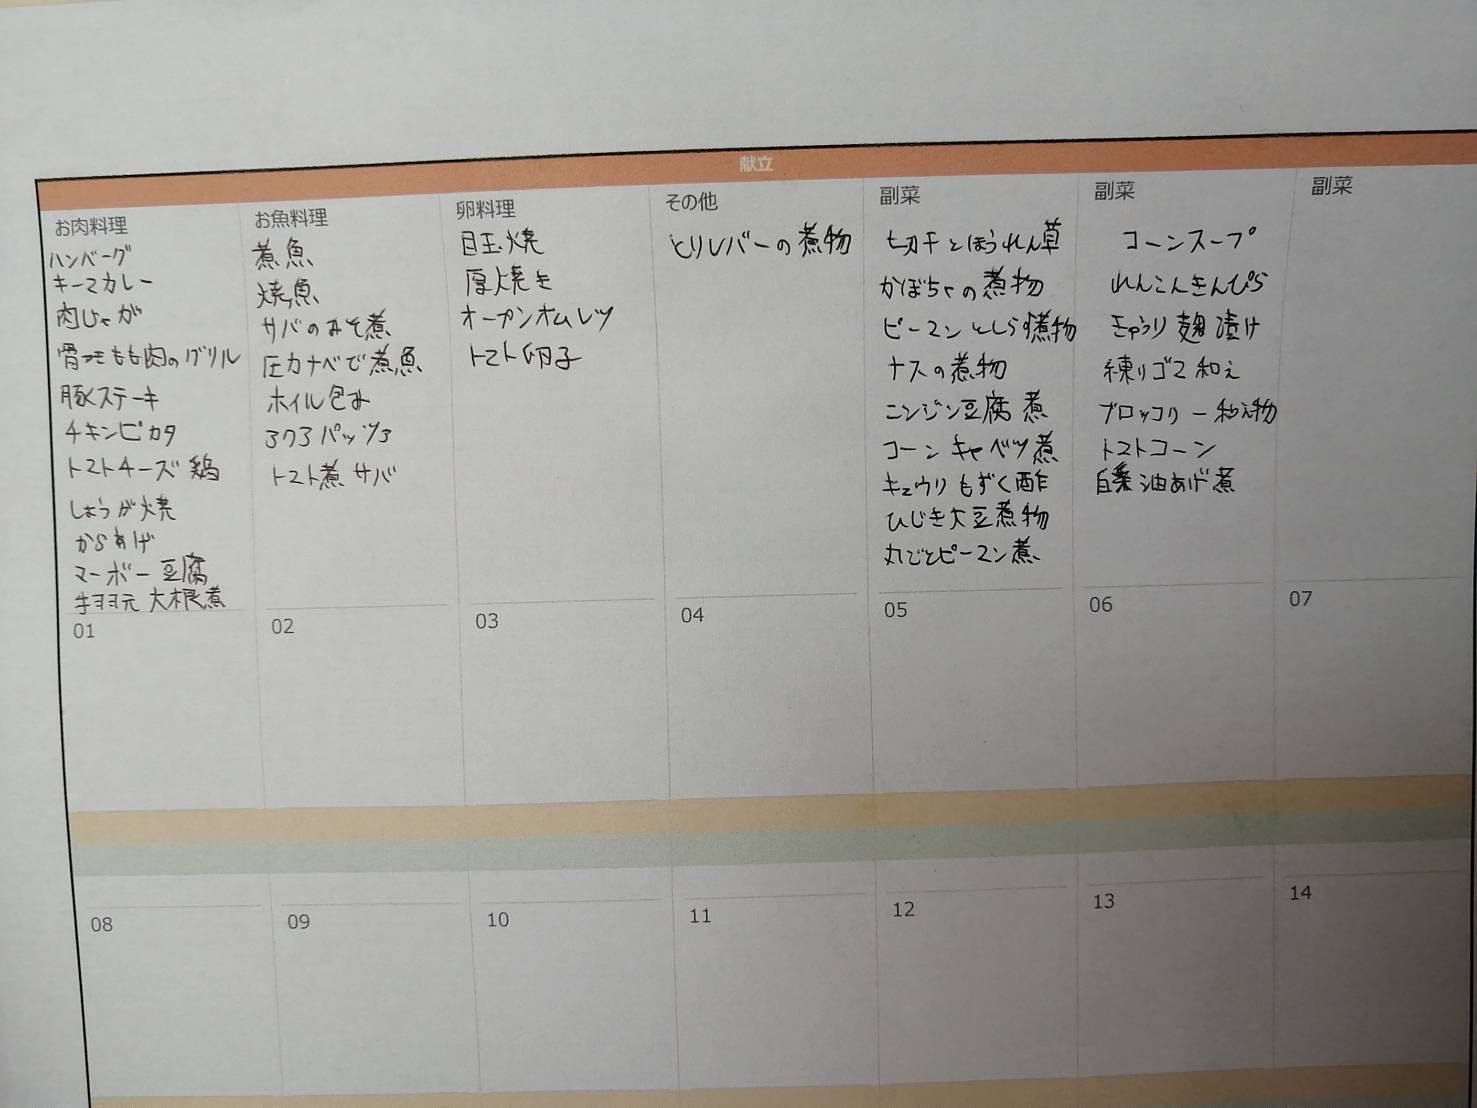 献立
お肉料理
ハンバーグ
キーマカレー
肉じゃが
骨つきもも肉のグリル
豚ステキ
チキンピカタ
トマトチーズ鶏
しょうが焼
からあげ
マーボー豆腐
大根煮
お魚料理
煮魚
焼魚
サバのみそ煮
圧力ナベで煮魚
ホイル包み
トマト煮サバ
卵料理
目玉焼
厚焼き
オープンオムレツ
トマト卵子
その他
とりレバーの煮物
副菜
切干とほうれん草
かぼちゃの煮物
ピーマンとしらす煮物
ナスの煮物
ニンジン豆腐煮
コーンキャベツ煮
キュウリもずく酢
ひじき大豆煮物
丸ごとピーマン煮
副菜
コーンスープ
れんこんきんぴら
きゅうり麹漬け
練りゴマ和え
ブロッコリー和え物
トマトコーン
油あげ煮
副菜
01
02
03
04
05
06
07
08
09
10
11
12
13
14